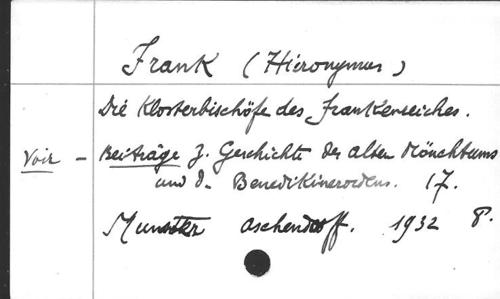 Frank (Hieronymus)
Die Klosterbischöfe des Frankenreiches.
Voir - Beiträge z. Geschichte des alten Mönchtums
und d. Benediktinerordens. 17.
Munster Aschendorff. 1932 8.